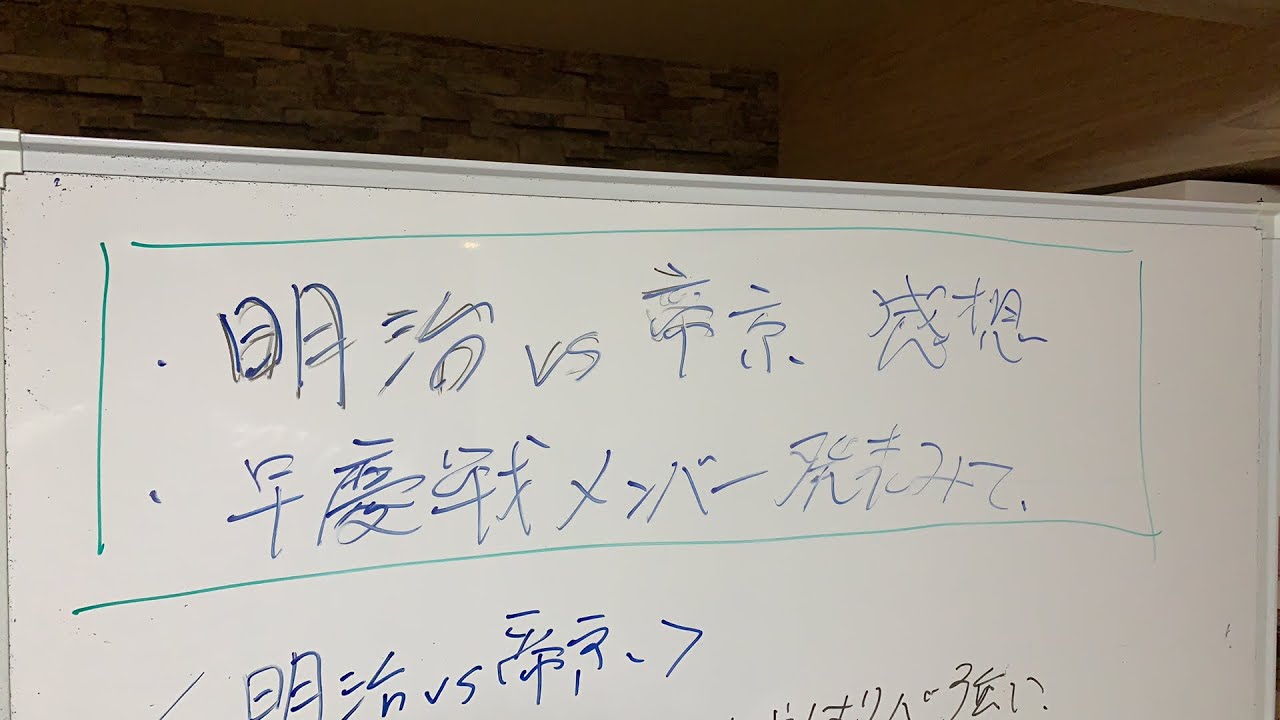 ・明治 vs 帝京 感想
・早慶戦メンバー発表みて、
<明治vs帝京、>